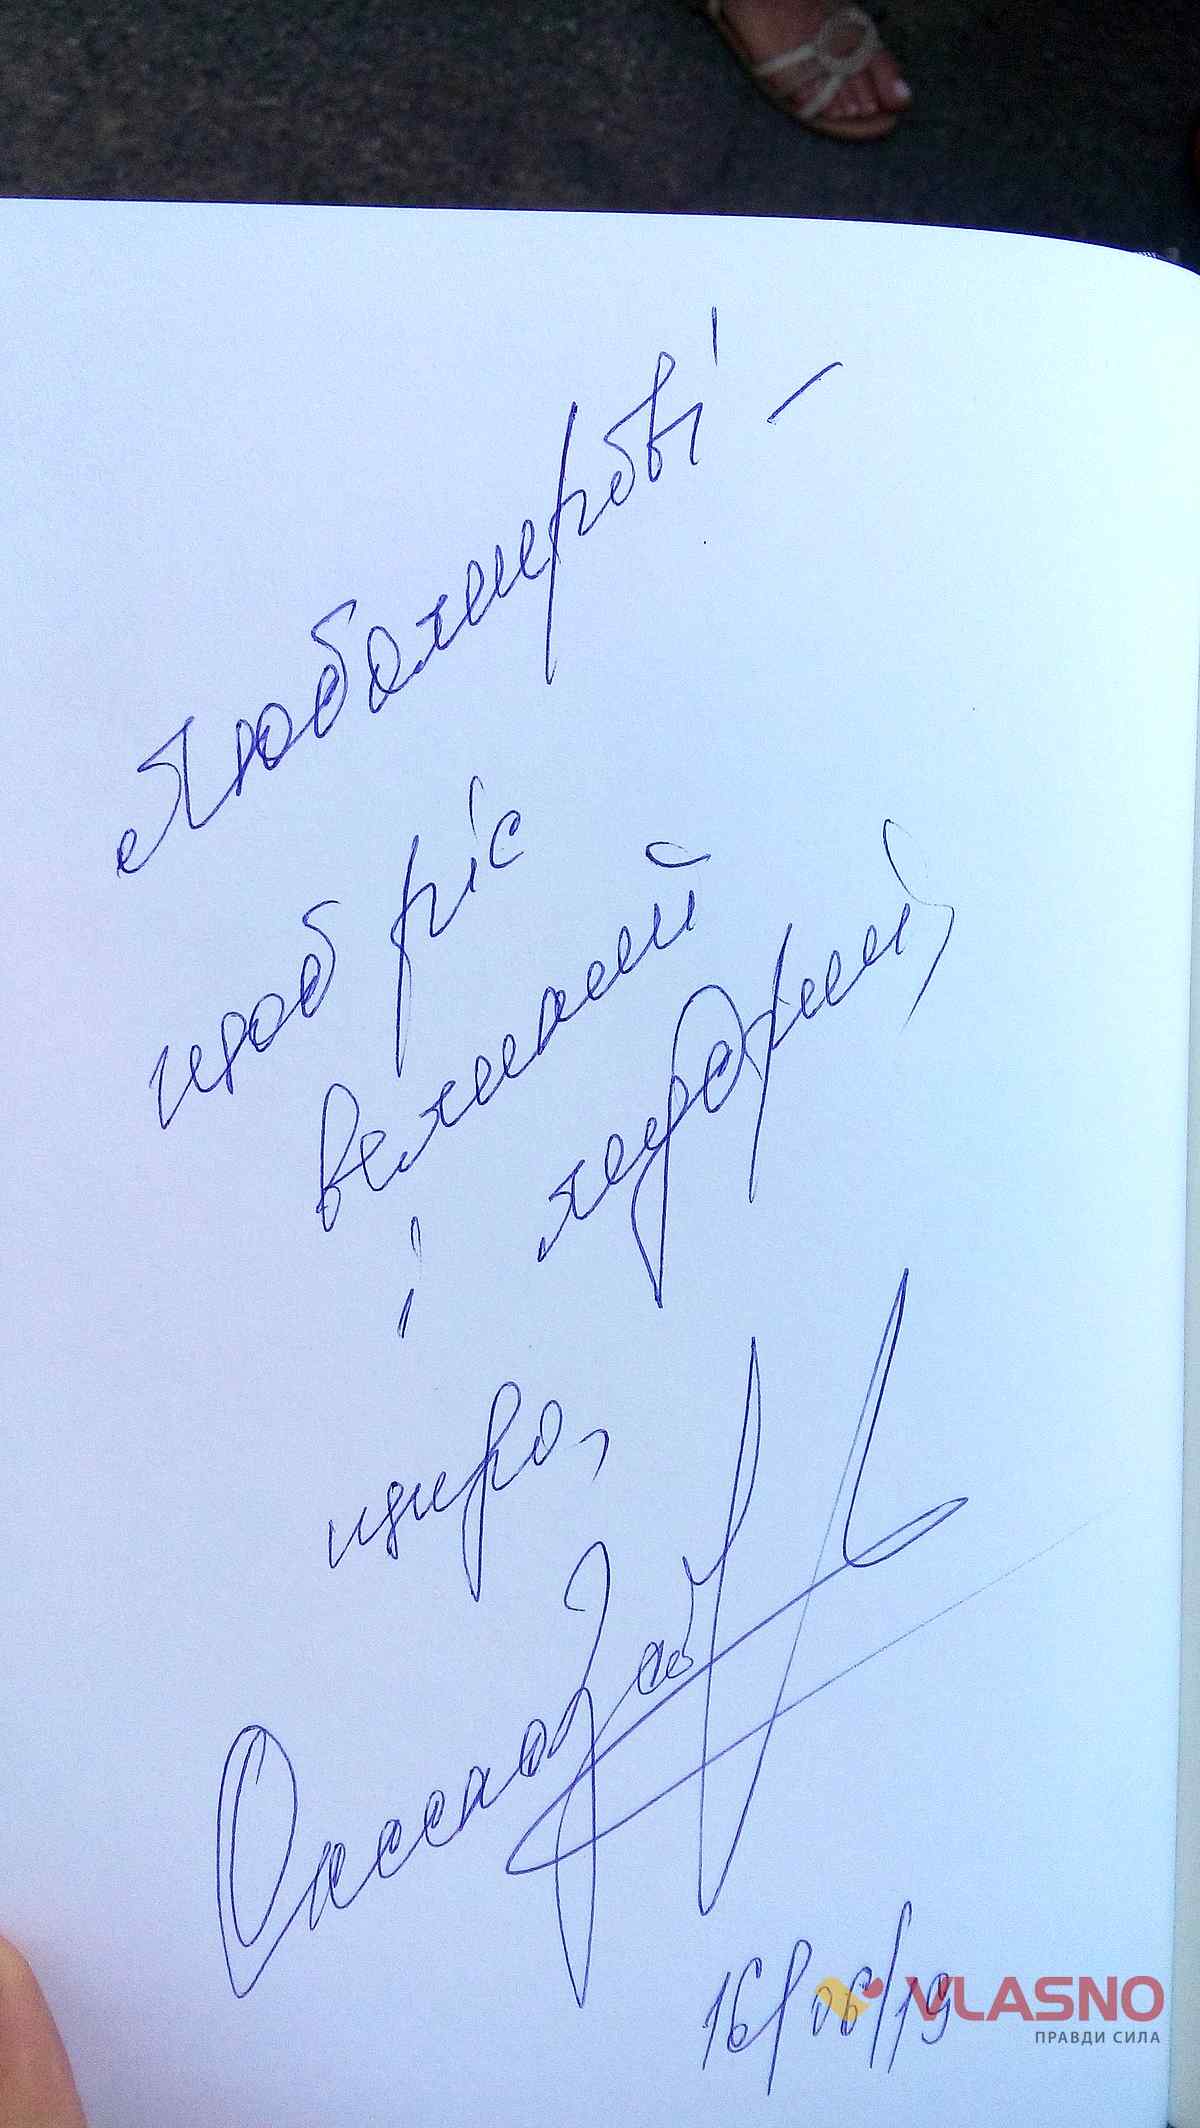 Любомирові –
щоб ріс
великий
і мудрий,
щиро,
Оксана Заб
16/06/19
VLASNO
ПРАВДИ СИЛА